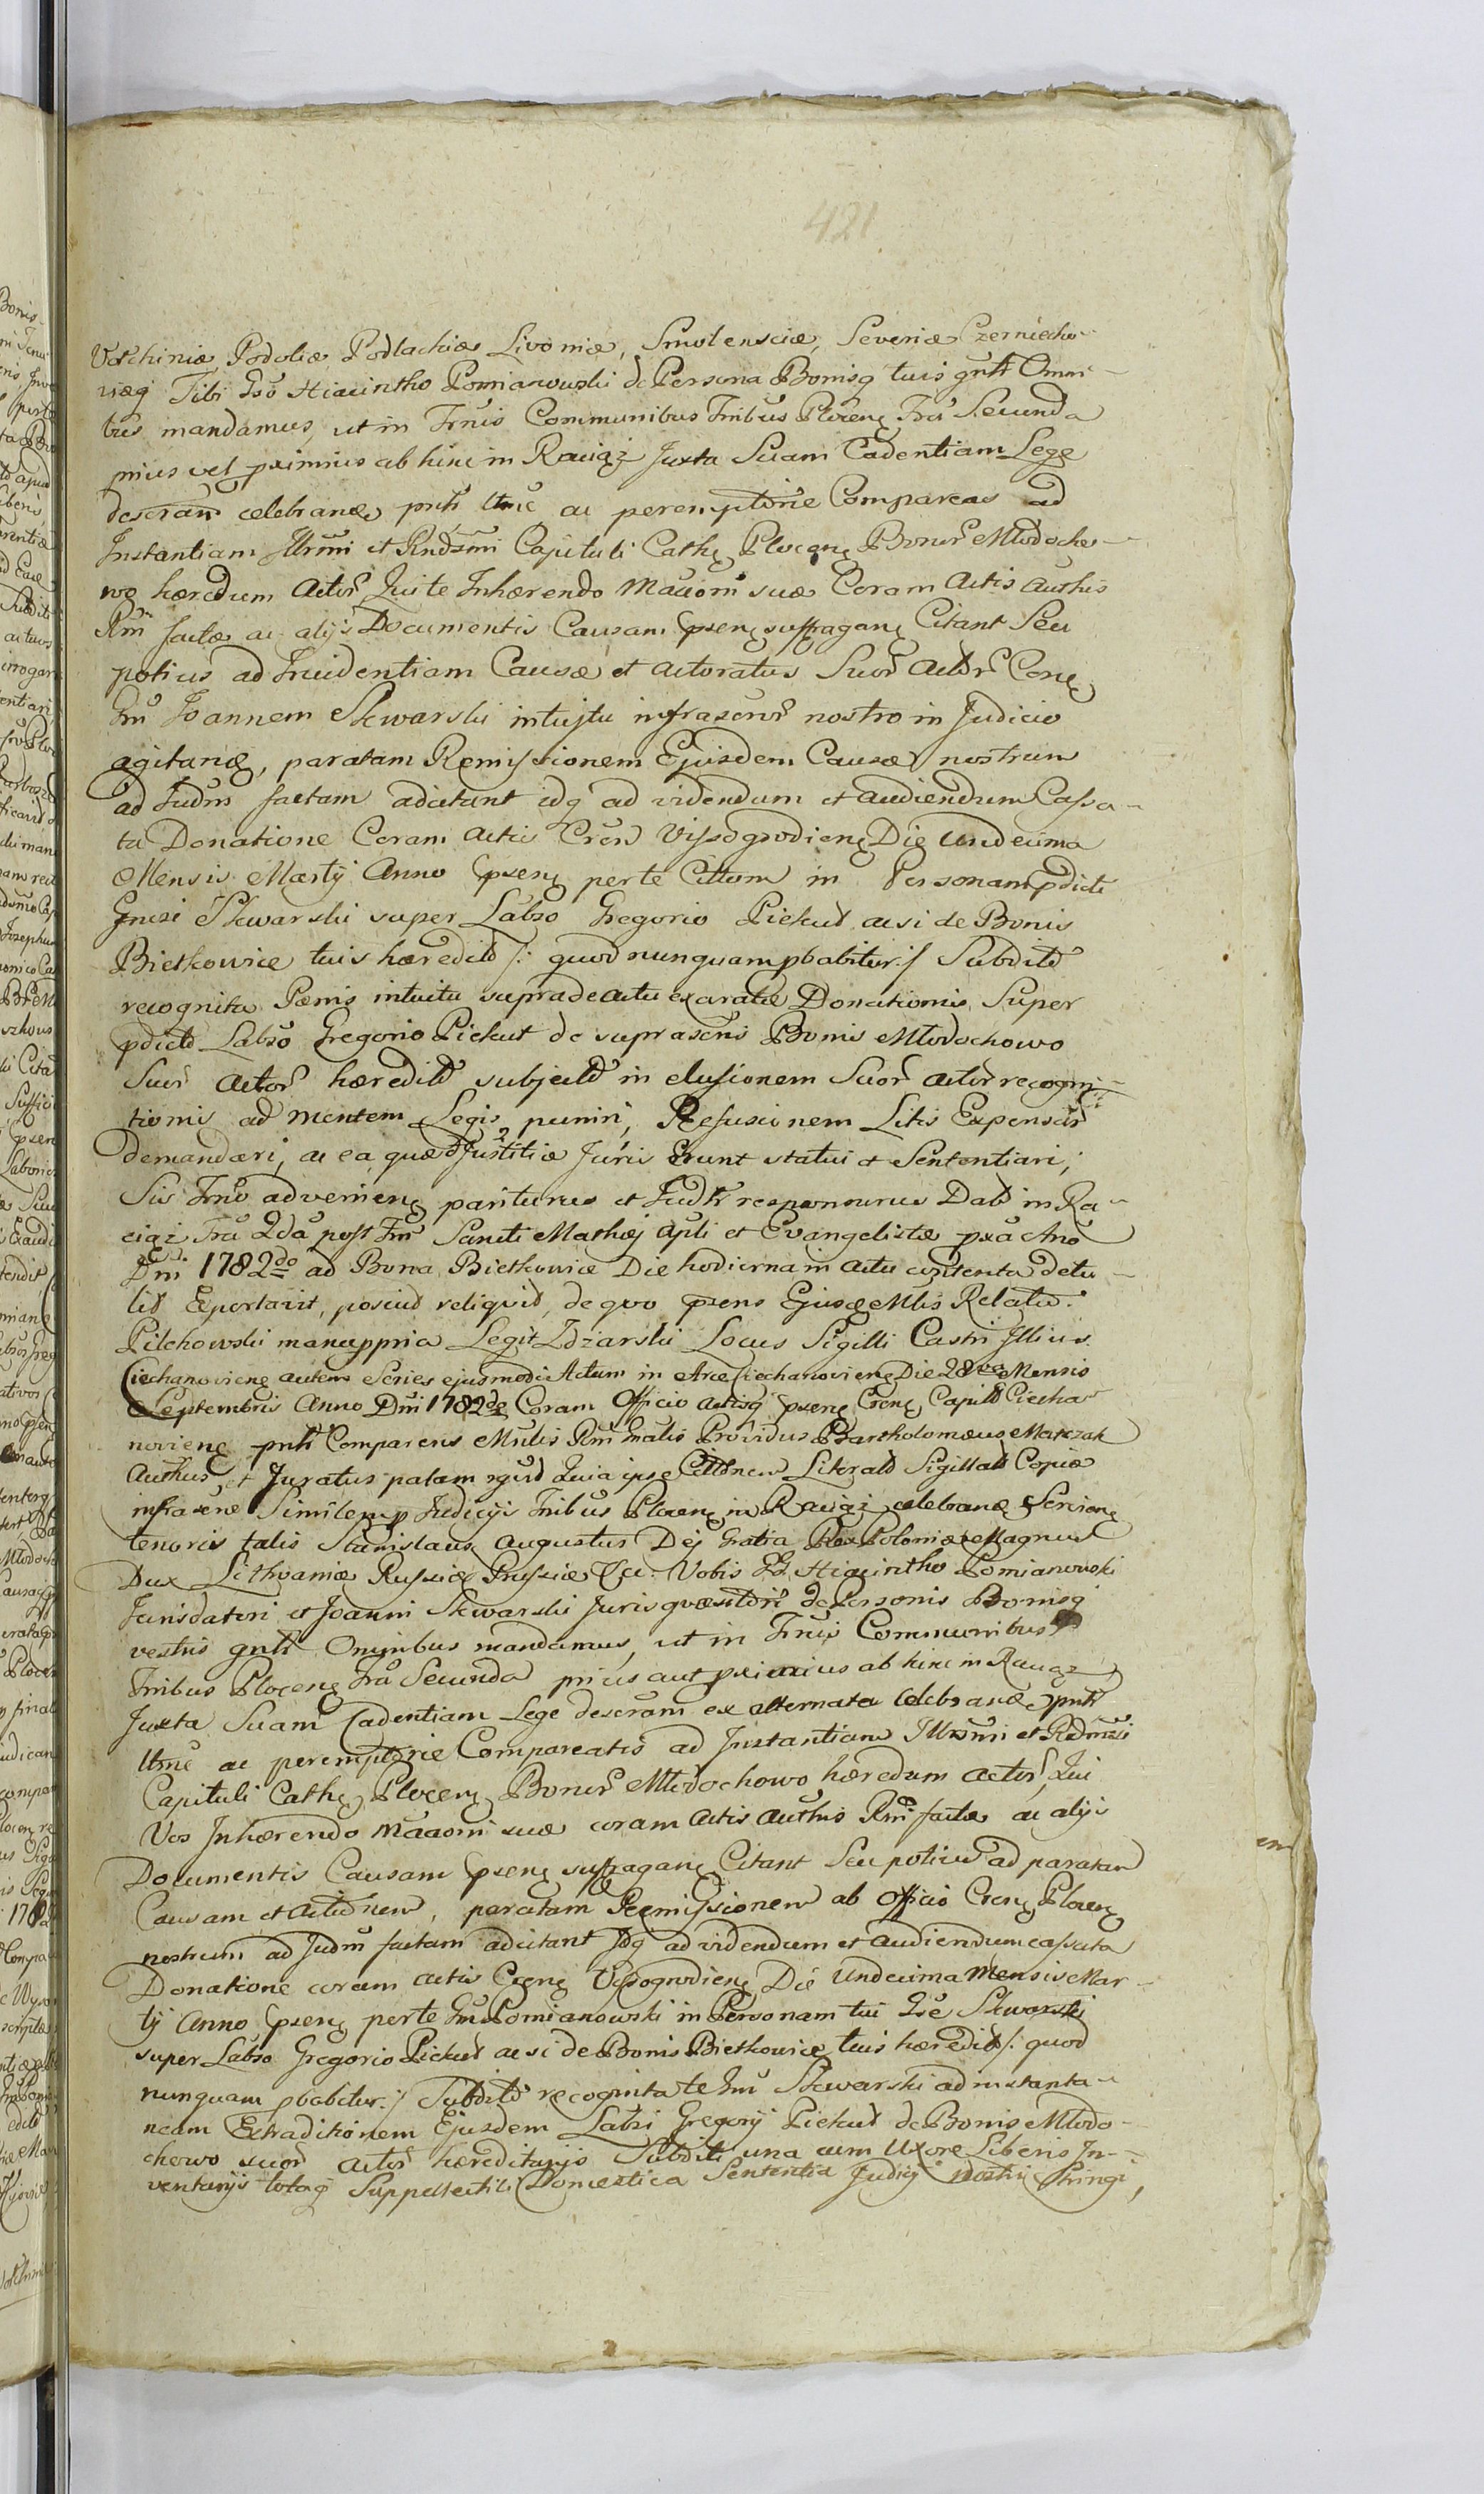 421
Volhiniæ Podoliæ Podlachiæ Livoniæ, Smolensciæ, Severiæ Czerniecho-
viæq Tibi Gso Hiacintho Pomianowski de Persona Bonisq tuis gnlt Omni-
bus mandamus, ut in Trnis Communibus Tribus Plocen Fra Secunda
prius vel primius ab hinc in Raciąż Juxta Suam Cadentiam Lege
descram celebrandæ pnlt ltme ac peremptorie Compareas ad
Instantiam Illrmi et Rndsmi Capituli Cathe Plocen Bonor Młodocho-
wo hæredum Actor Qui te Inhærendo Maaoni suæ Coram Actis Authis
Rm factæ ac alijs Documentis Causam psen suffragan Citant Seu
potius ad Incidentiam Causæ et Actoratus Suor Actor Cone
Gm Joannem Skwarski intuitu infrascror nostro in Judicio
agitandæ, paratam Remissionem Ejusdem Causæ nostrum
ad Judm factam adcitant idq ad videndum et audiendum Cassa-
ta Donatione Coram Actis Cren Vissogrodien Die Undecima
Mensis Martij Anno psen per te Cittum in Personam pdicti
Gnesi Skwarski super Labso Gregorio Piekut acsi de Bonis
Bietkowice tuis hæredits /: quod nunquam pbabitur :/ Subdito
recognita Pœnis intuitu supra de actu exaratæ Donationis Super
pdicto Labso Gregorio Piekut de suprascris Bonis Młodochowo
Suor Actor hæredito subjecto in elusionem Suor Actor recogni-
tionis ad mentem Legis puniri, Refusionem Litis Expensar
demandari, ac ea quæ Justitiæ Juris Erunt statui et Sententiari;
Sis Trno advenien pariturus et Judlr responsurus Dat in Ra-
ciąż Fra 2da post Fm Sancti Mathej Apli et Evangelistæ pxa Ano
Dni 1782do ad Bona Bietkowice Die hodierna in Actu contenta detu-
lit Exportavit, posuit reliquit, de quo psens Ejusdem Mlis Relatio.
Pilchowski manu ppria Legit Zdziarski Locus Sigilli Castri Illius.
Ciechanovien autem Series ejusmodi Actum in Arce Ciechanovien Die 28va Mensis
Septembris Anno Dni 1782do Coram Officio Actisq psen Cren Capitd Ciecha-
novien pnlt Comparens Mnlis Rm Gnalis Providus Bartholomæus Matczak
Authus et Juratus palam rgvit Quia ipse Cittonem Literald Sigillatd Copiæ
infrascræ Similem p Judicijs Tribus Plocen in Raciąż celebrandæ Servien
tenoris talis Stanislaus Augustus Dej Gratia Rex Poloniæ Magnus
Dux Lithvaniæ Russiæ Prussiæ &c. Vobis GG Hiacintho Pomianowski
Jurisdatori et Joanni Skwarski Juris quæsitori de Personis Bonisq
vestris gnlt Omnibus mandamus, ut in Trnis Communibus
Tribus Plocen Fra Secunda prius aut primius ab hinc in Raciąż
Juxta Suam Cadentiam Lege descram ex alternata celebrandæ pnlt
ltme ac peremptorie Compareatis ad Instantiam Illrsmi et Rdmssi
Capituli Cathe Plocen Bonor Młodochowo hæredum Actor, Qui
Vos Inhærendo Maaoni suæ coram Actis Authis Rm factæ ac alijs
Documentis Causam psen suffragan Citant Seu potius ad paratam
Causam et Actionem, paratam Remissionem ab Officio Cren Plocen
nostrum ad Judm factam adcitant Idq ad videndum et audiendum cassata
Donatione coram Actis Cren Vissogrodien Die Undecima Mensis Mar-
tij Anno psen per te Gm Pomianowski in Personam tui Gse Skwarski
super Labso Gregorio Piekut acsi de Bonis Bietkowice tuis hæredits /: quod
nunquam pbabitur :/ Subdito recognita te Gm Skwarski ad instanta-
neam Extraditionem Ejusdem Labsi Gregorij Piekut de Bonis Młodo-
chowo suor Actor hæreditarijs Subditi una cum Uxore Liberis In-
ventarijs totaq Suppellectili Domestica Sententia Judicij nostri Stringi,